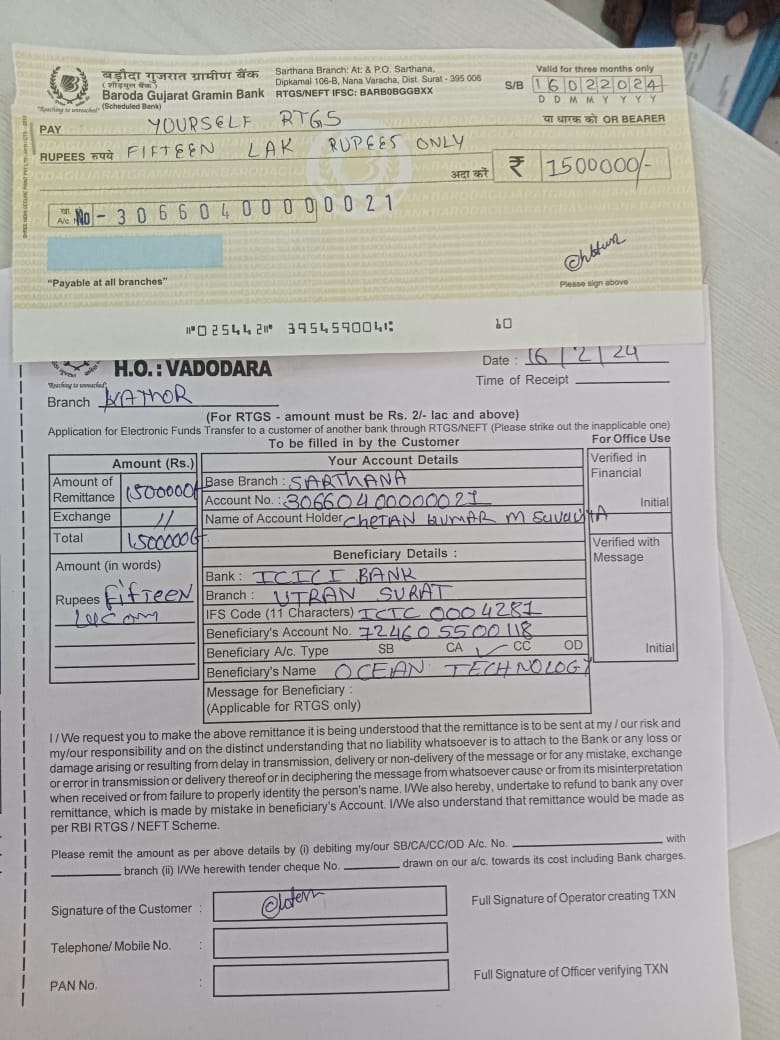 बड़ौदा गुजरात ग्रामीण बैंक
Baroda Gujarat Gramin Bank
(Scheduled Bank)
"Reaching to unreached"
Sarthana Branch: At: & P.O. Sarthana,
Dipkamal 106-B, Nana Varacha, Dist. Surat - 395 006
RTGS/NEFT IFSC: BARB0BGGBXX
Valid for three months only
S/B 16022024
D D M M Y Y Y Y
PAY YOURSELF RTGS या धारक को OR BEARER
RUPEES रुपये FIFTEEN LAK RUPEES ONLY
अदा करें ₹ 1500000/-
खा. A/c. No - 30660400000021
"Payable at all branches"
Please sign above
⑈025442⑈ 395459004⑆ 10
H.O.: VADODARA
"Reaching to unreached"
Date : 16/2/24
Time of Receipt
Branch KATHOR
(For RTGS - amount must be Rs. 2/- lac and above)
Application for Electronic Funds Transfer to a customer of another bank through RTGS/NEFT (Please strike out the inapplicable one)
To be filled in by the Customer
For Office Use
Amount (Rs.)
Amount of Remittance 1500000/-
Exchange 11
Total
Amount (in words)
Rupees Fifteen
Your Account Details
Base Branch : SARTHANA
Account No. : 30660400000021
Name of Account Holder CHETAN KUMAR M
Beneficiary Details :
Bank : ICICI BANK
Branch : UTRAN SURAT
IFS Code (11 Characters) ICIC 0004281
Beneficiary's Account No. 724605500118
Beneficiary A/c. Type SB CA ✓ CC OD
Beneficiary's Name OCEAN TECHNOLOGY
Message for Beneficiary :
(Applicable for RTGS only)
Verified in Financial
Initial
Verified with Message
Initial
I / We request you to make the above remittance it is being understood that the remittance is to be sent at my / our risk and
my/our responsibility and on the distinct understanding that no liability whatsoever is to attach to the Bank or any loss or
damage arising or resulting from delay in transmission, delivery or non-delivery of the message or for any mistake, exchange
or error in transmission or delivery thereof or in deciphering the message from whatsoever cause or from its misinterpretation
when received or from failure to properly identify the person's name. I/We also hereby, undertake to refund to bank any over
remittance, which is made by mistake in beneficiary's Account. I/We also understand that remittance would be made as
per RBI RTGS / NEFT Scheme.
Please remit the amount as per above details by (i) debiting my/our SB/CA/CC/OD A/c. No. with
branch (ii) I/We herewith tender cheque No. drawn on our a/c. towards its cost including Bank charges.
Signature of the Customer :
Full Signature of Operator creating TXN
Telephone/ Mobile No. :
PAN No. :
Full Signature of Officer verifying TXN